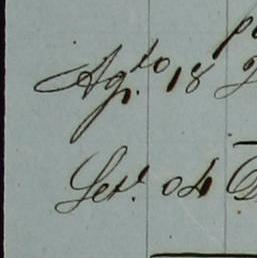 Agto 18
Set. 04